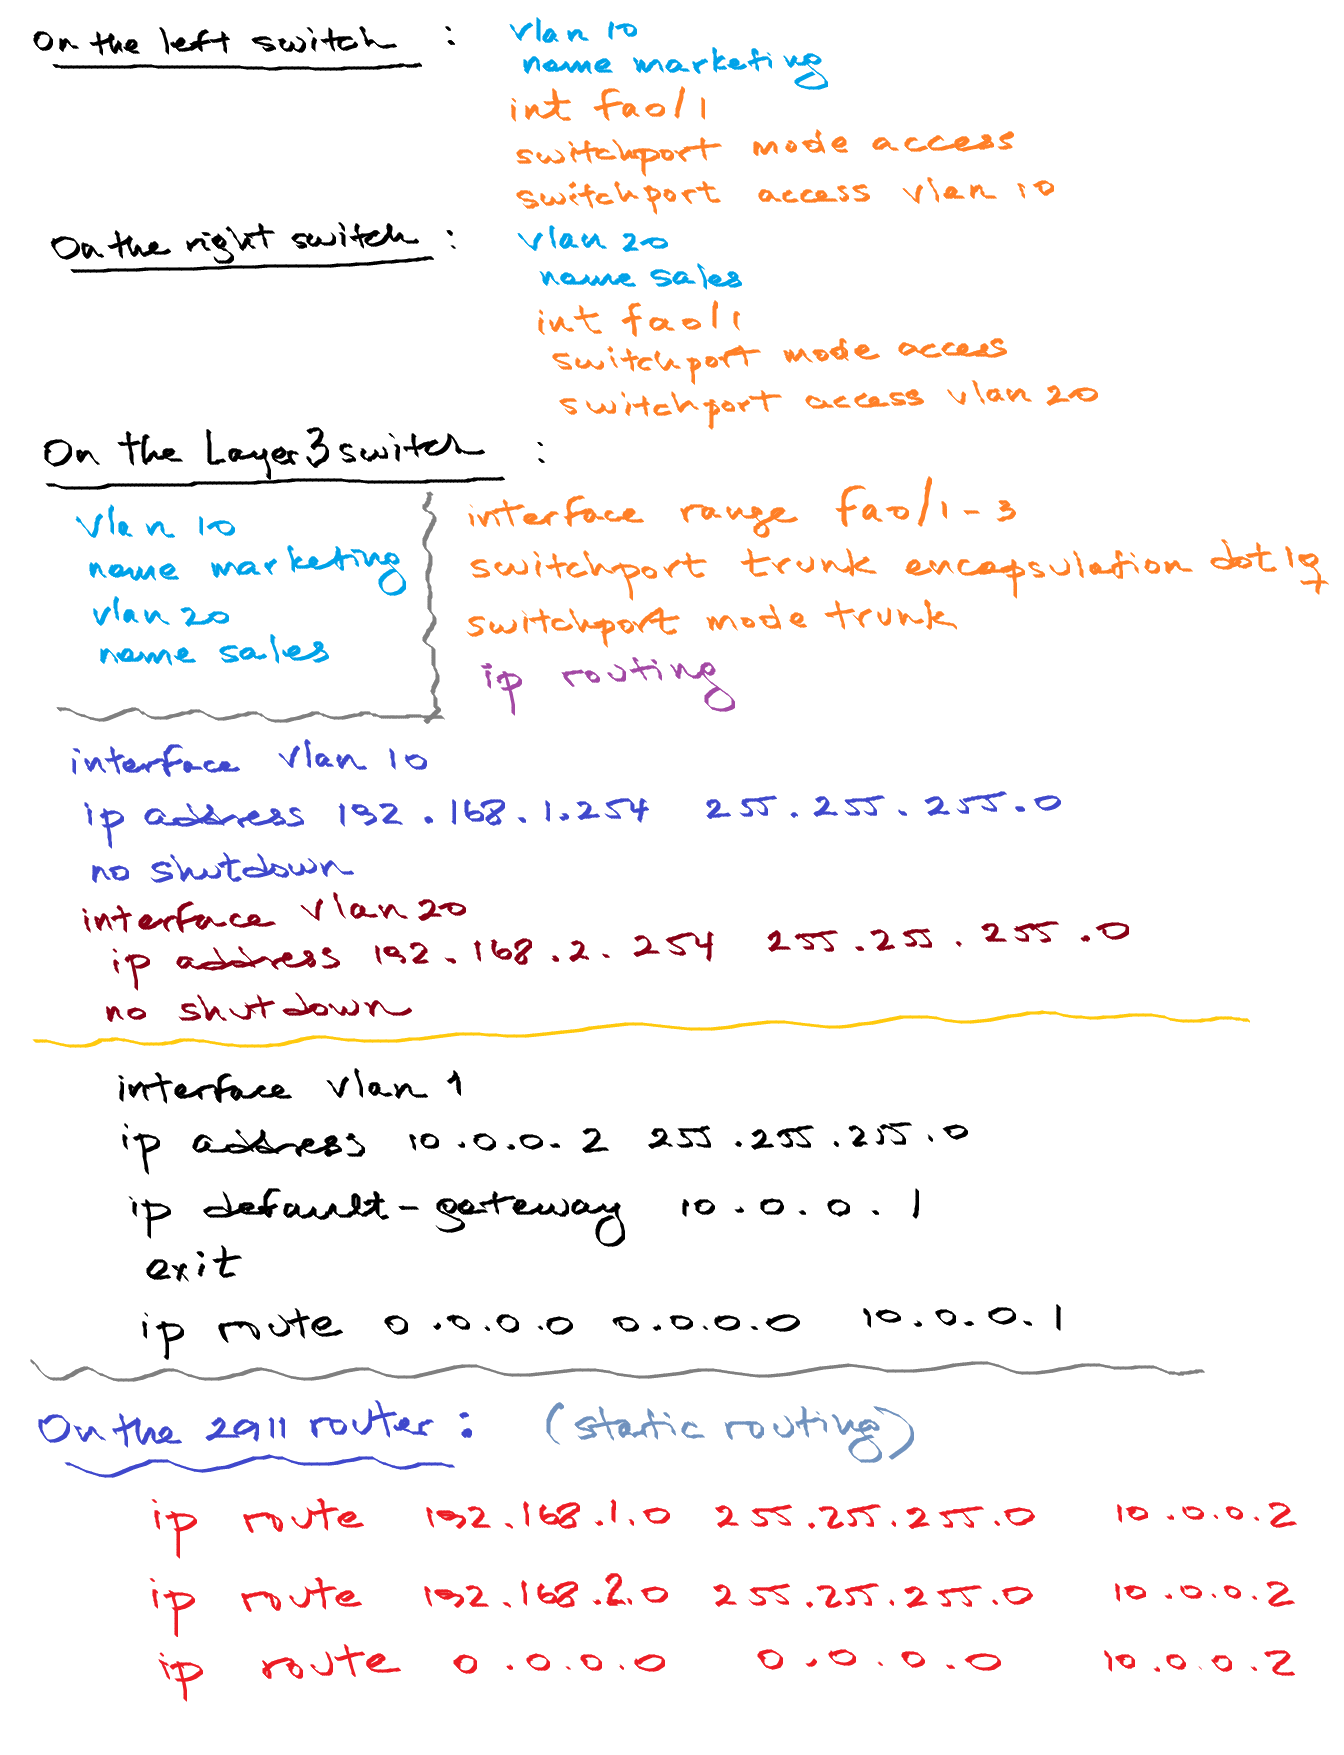 On the left switch : vlan 10
name marketing
int fa0/1
switchport mode access
switchport access vlan 10
On the right switch : vlan 20
name sales
int fa0/1
switchport mode access
switchport access vlan 20
On the Layer 3 switch :
vlan 10
name marketing
vlan 20
name sales
interface range fa0/1-3
switchport trunk encapsulation dot1q
switchport mode trunk
ip routing
interface vlan 10
ip address 192.168.1.254 255.255.255.0
no shutdown
interface vlan 20
ip address 192.168.2.254 255.255.255.0
no shutdown
interface vlan 1
ip address 10.0.0.2 255.255.255.0
ip default-gateway 10.0.0.1
exit
ip route 0.0.0.0 0.0.0.0 10.0.0.1
On the 2911 router : (static routing)
ip route 192.168.1.0 255.255.255.0 10.0.0.2
ip route 192.168.2.0 255.255.255.0 10.0.0.2
ip route 0.0.0.0 0.0.0.0 10.0.0.2